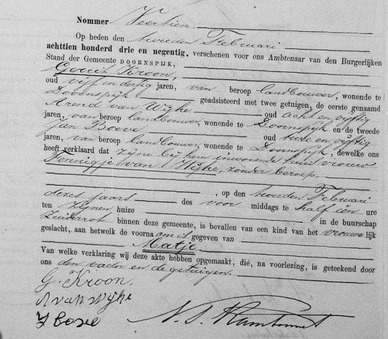 Nommer Veertien
Op heden den tweeden Februari
achttien honderd drie en negentig, verschenen voor ons Ambtenaar van den Burgerlijken
Stand der Gemeente DOORNSPIJK,
Kroon, oud
vijf en dertig jaren, van beroep landbouwer, wonende te
Doornspijk geadsisteerd met twee getuigen, de eerste genaamd
Arend van Wijhe oud acht en vijftig
jaren, van beroep landbouwer, wonende te Doornspijk de tweede
Jan Boeve oud vijftig
jaren, van beroep landbouwer, wonende te Doornspijk, dewelke ons
heeft verklaard dat zijne bij hem inwonende huisvrouw
van Wijhe, zonder beroep
, op den tweeden Februari
dezes jaars des voor middags te half tien ure
ten zijnen huize in de buurschap
binnen deze gemeente, is bevallen van een kind van het vrouwelijk
geslacht, aan hetwelk de voornaam is gegeven van
Matje
Van welke verklaring wij deze akte hebben opgemaakt, die, na voorlezing, is geteekend door
ons den vader en de getuigen.
G. Kroon
A van Wijhe
J Boeve